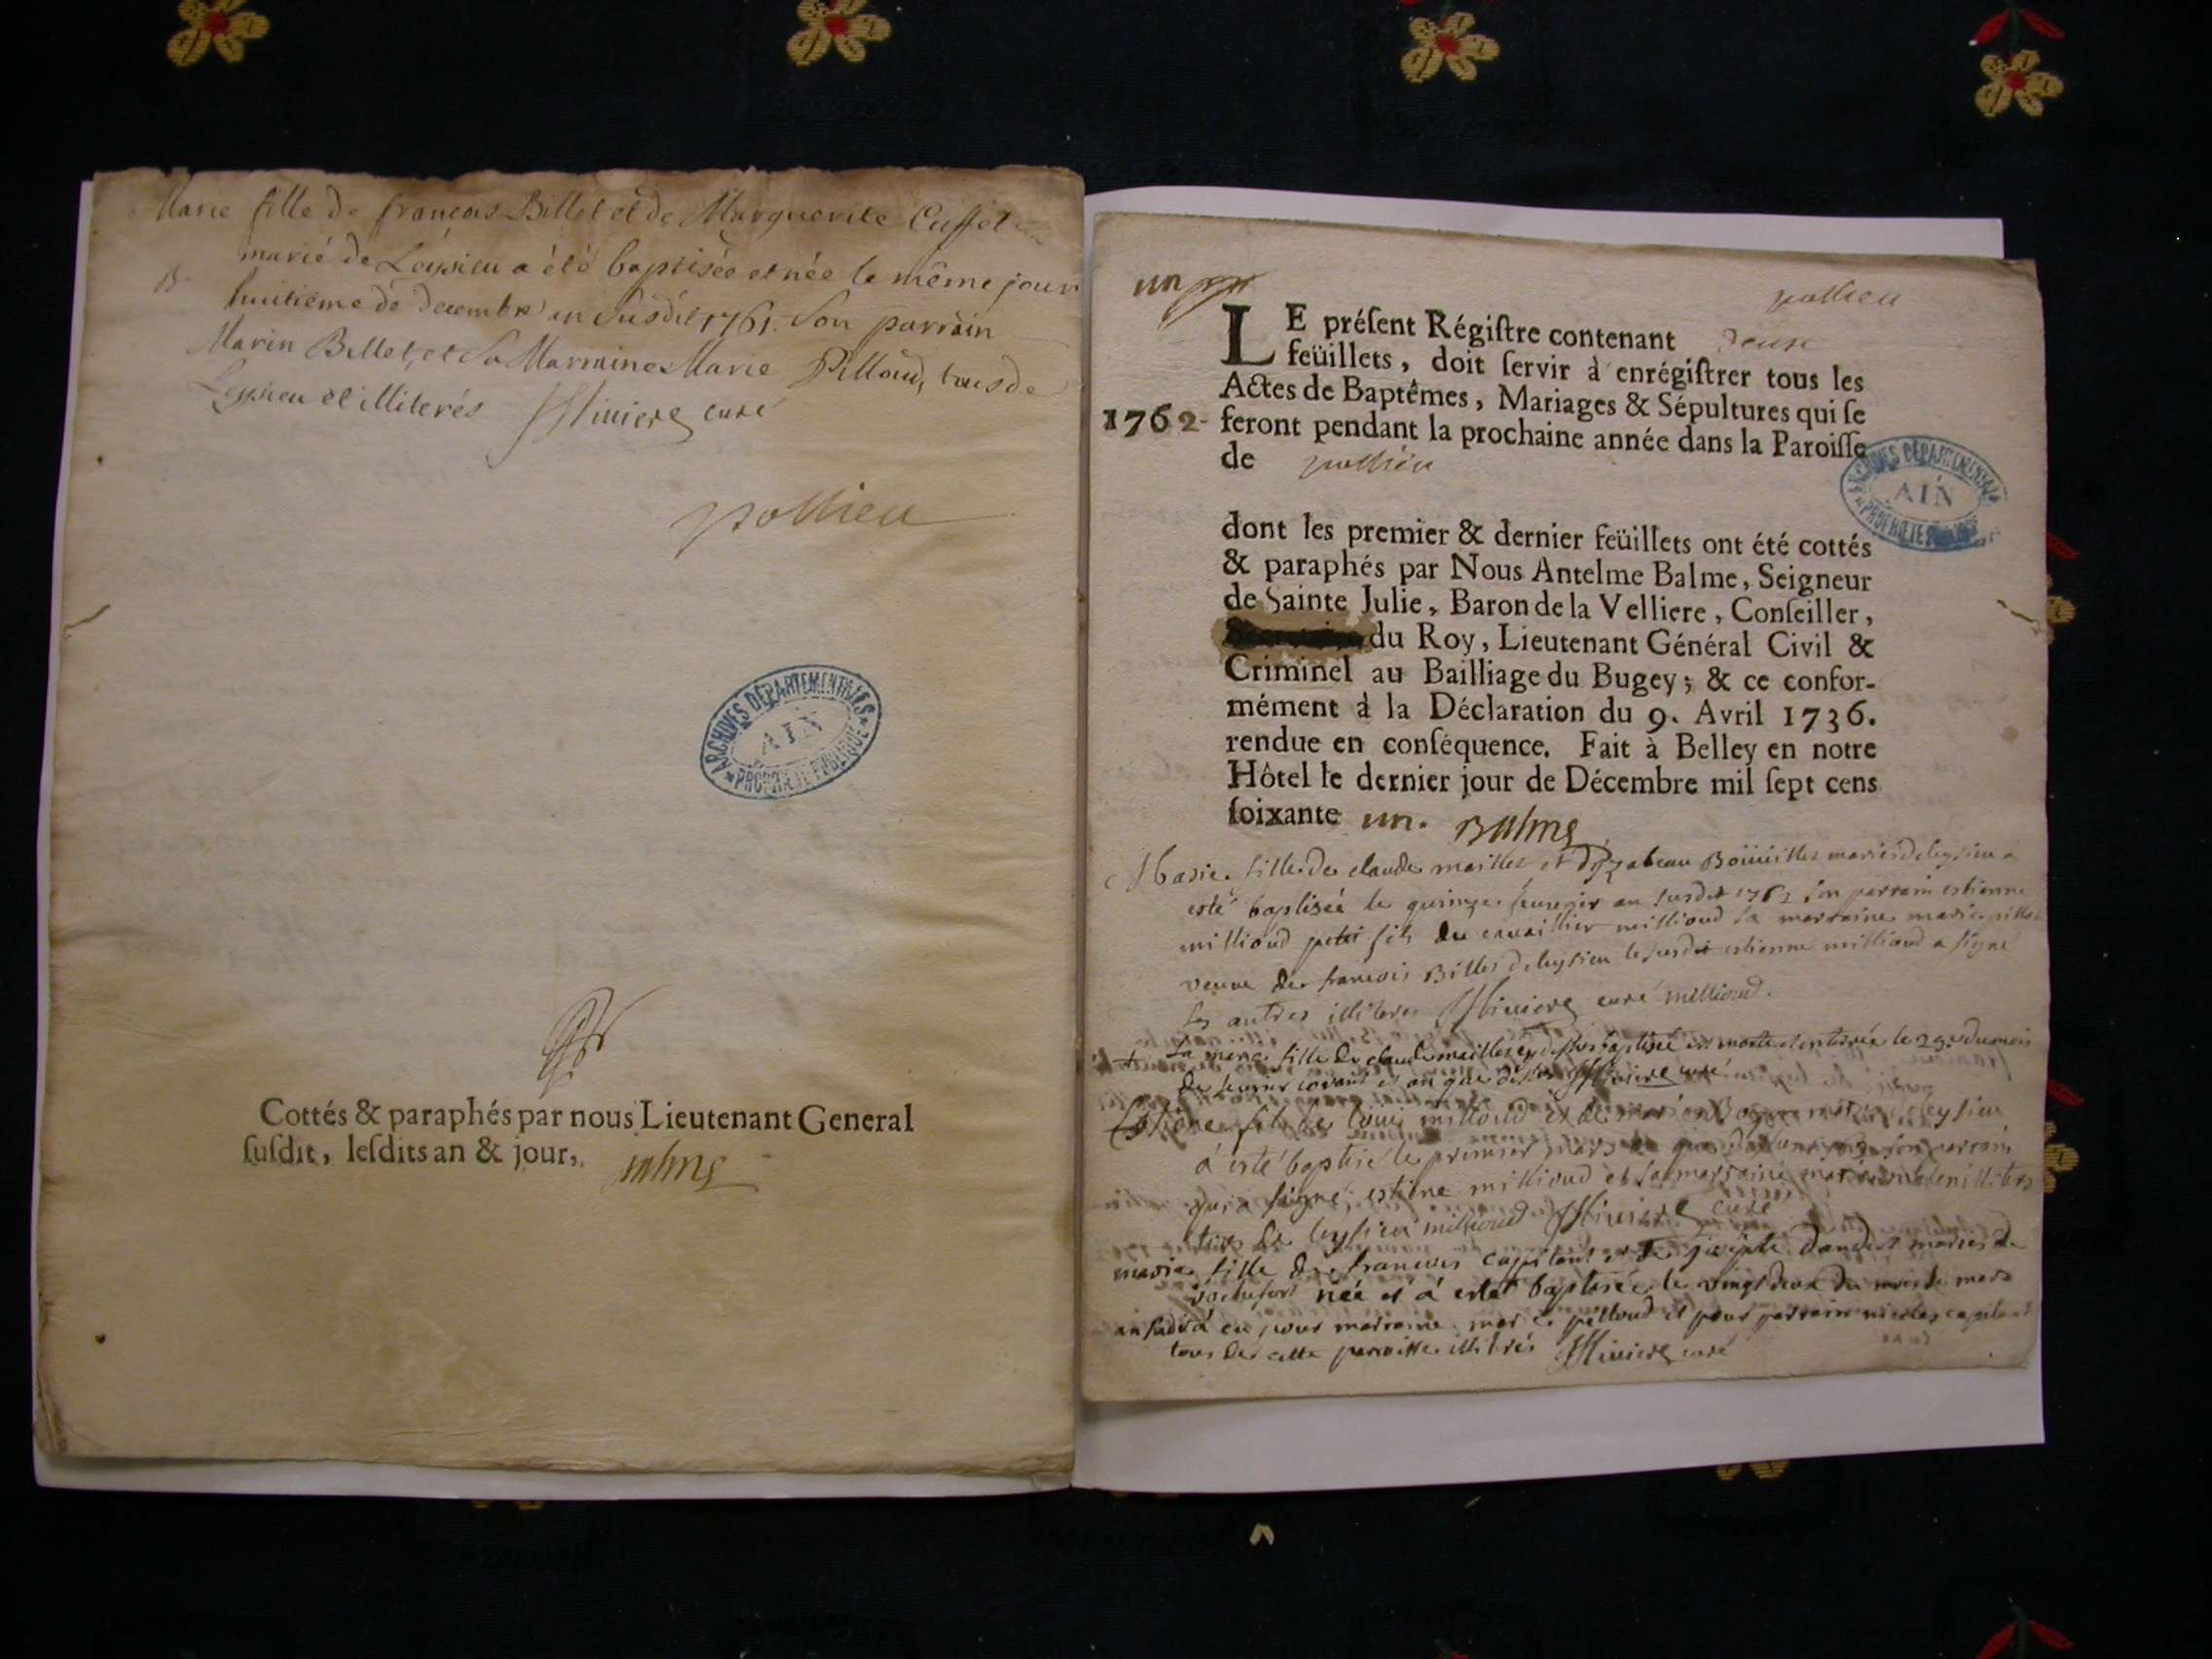 Marie fille de françois Billet et de Marguerite Cuffet
marié de Leysieu a été baptisée et née le même jour
B
huitiême de decembre an susdit 1761. Son parrain
Marin Billet, et Sa Marraine Marie Pilloud, tous de
Leysieu et illiterés curé
pollieu
ARCHIVES DÉPARTEMENTALES
AIN
PROPRIÉTÉ PUBLIQUE
Cottés & paraphés par nous Lieutenant General
ſuſdit, leſdits an & jour, Balme
un
pollieu
LE préſent Régiſtre contenant deux
feüillets, doit ſervir à enrégiſtrer tous les
Actes de Baptêmes, Mariages & Sépultures qui ſe
1762 feront pendant la prochaine année dans la Paroiſſe
de pollieu
ARCHIVES DÉPARTEMENTALES
AIN
PROPRIÉTÉ PUBLIQUE
dont les premier & dernier feüillets ont été cottés
& paraphés par Nous Antelme Balme, Seigneur
de Sainte Julie, Baron de la Velliere, Conſeiller,
du Roy, Lieutenant Général Civil &
Criminel au Bailliage du Bugey; & ce confor-
mément à la Déclaration du 9. Avril 1736.
rendue en conſéquence. Fait à Belley en notre
Hôtel le dernier jour de Décembre mil ſept cens
ſoixante un. Balme
Marie fille de claude maillet et d'yzabeau mariés de leysieu a
esté baptisée le quinze feurier an susdit 1762 son parrain estienne
millioud petit fils du millioud sa marraine marie
veuve de francois Billet de leysieu le susdit estienne millioud a signé
les autres illiteres curé millioud.
+ La marie fille de claude maillet baptisée est morte et enterrée le du mois
de feurier courant et an que dessus curé
Estiene fils de louis millioud et de leysieu
a esté baptisé le premier mars son parrain
qui a signé estiene millioud et sa marraine
tous de leysieu millioud curé
marie fille de francois capitant et de mariés de
rochefort née et a esté baptisée le vingt deux du mois de mars
an susdit a eu pour marraine marie pilloud et pour parrain nicolas capitant
tous de cette parroisse illitrés curé